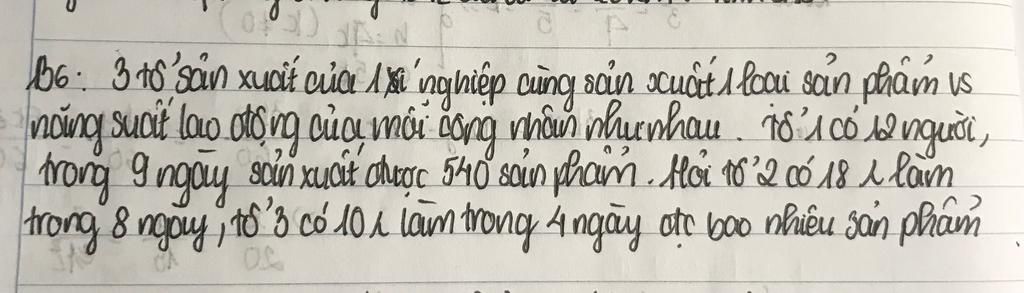 B6: 3 tổ sản xuất của 1 xí nghiệp cùng sản xuất 1 loại sản phẩm vs
năng suất lao động của mỗi công nhân như nhau. Tổ 1 có 12 người,
trong 9 ngày sản xuất được 540 sản phẩm. Hỏi tổ 2 có 18 làm
trong 8 ngày, tổ 3 có 10 làm trong 4 ngày đc bao nhiêu sản phẩm